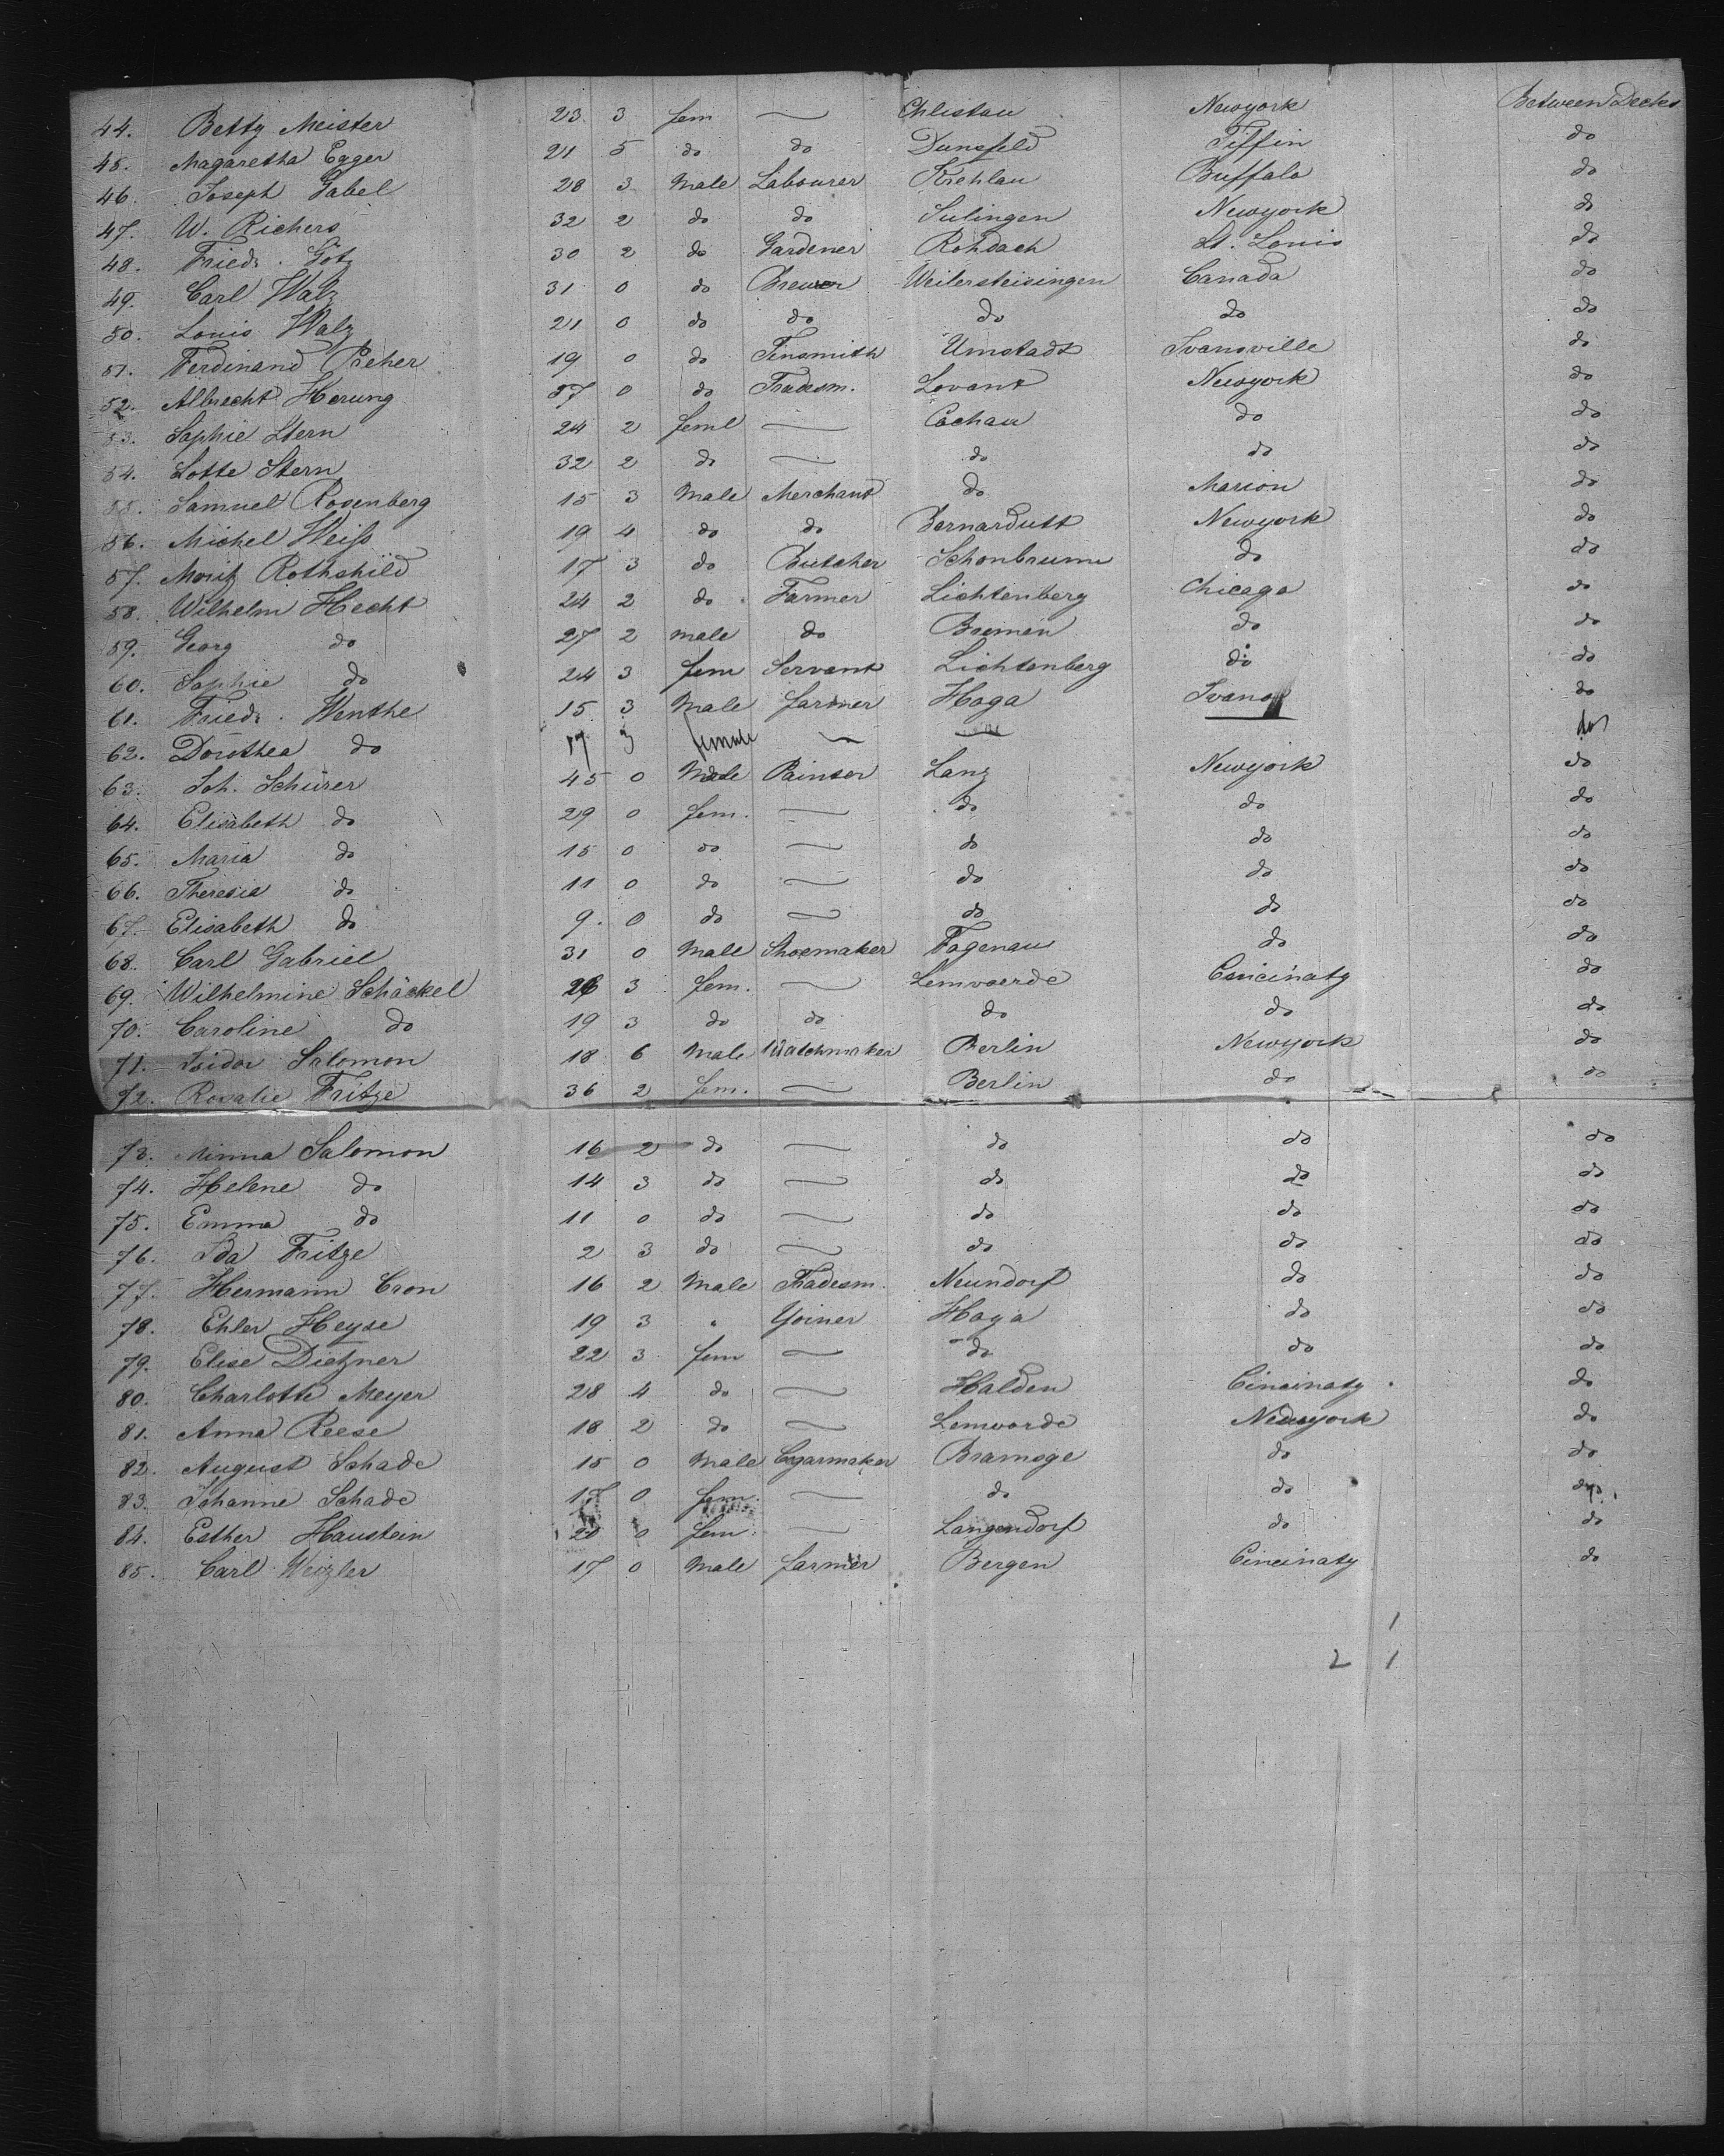 44. Betty Meister 23 3 fem — Chlistau Newyork Between Decks
45. Magaretha Egger 21 5 do do Dunsfeld Tiffin do
46. Joseph Gabel 28 3 Male Labourer Krehlau Buffalo do
47. W. Richers 32 2 do do Sulingen Newyork do
48. Friedr. Götz 30 2 do Gardener Rohdach St. Louis do
49. Carl Walz 31 0 do Brewer Weilersteisingen Canada do
50. Louis Walz 21 0 do do do do do
51. Ferdinand Reher 19 0 do Tinsmith Umstadt Ivansville do
52. Albrecht Herung 37 0 do Tradesm. Lovant Newyork do
53. Sophie Stern 24 2 feml — Cochau do do
54. Lotte Stern 32 2 do — do do do
55. Samuel Rosenberg 15 3 Male Merchant do Marion do
56. Michel Weiß 19 4 do do Bernardutt Newyork do
57. Moritz Rothshild 17 3 do Butcher Schonbrunn do do
58. Wilhelm Hecht 24 2 do Farmer Lichtenberg Chicago do
59. Georg do 27 2 male do Bremen do do
60. Sophie do 24 3 fem Servant Lichtenberg do do
61. Friedr. Wenthe 15 3 Male farmer Hoga Ivans do
62. Dorothea do 17 3 female — — do
63. Joh. Schürer 45 0 Male Painter Lanz Newyork do
64. Elisabeth do 29 0 fem. — do do do
65. Maria do 15 0 do — do do do
66. Theresia do 11 0 do — do do do
67. Elisabeth do 9 0 do — do do do
68. Carl Gabriel 31 0 Male Shoemaker Fagenau do do
69. Wilhelmine Schäckel 26 3 fem. — Lemvoerde Cincinaty do
70. Caroline do 19 3 do do do do do
71. Isidor Salomon 18 6 Male Watchmaker Berlin Newyork do
72. Rosalie Fritze 36 2 fem. — Berlin do do
73. Minna Salomon 16 2 do — do do do
74. Helene do 14 3 do — do do do
75. Emma do 11 0 do — do do do
76. Ida Fritze 2 3 do — do do do
77. Hermann Cron 16 2 Male Tradesm. Neundorf do do
78. Ehler Heyse 19 3 " Yoiner Hoya do do
79. Elise Dietzner 22 3 fem — do do do
80. Charlotte Meyer 28 4 do — Halden Cincinaty do
81. Anna Reese 18 2 do — Lemvorde Newyork do
82. August Schade 15 0 Male Cigarmaker Bramsge do do
83. Johanne Schade 17 0 fem. — do do do
84. Esther Haustein 20 0 fem. — Langendorf do do
85. Carl Weizler 17 0 Male farmer Bergen Cincinaty do
1
2 1